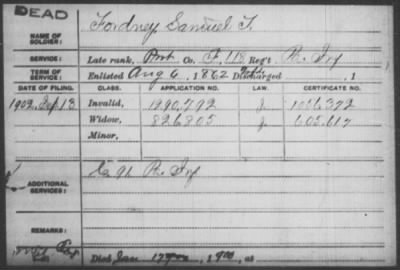 DEAD
NAME OF SOLDIER: Fordney Samuel T.
SERVICE: Late rank, Co. F, 118 Reg't Pa. Inf
TERM OF SERVICE: Enlisted Aug 6, 1862 Discharged , 1
DATE OF FILING. CLASS. APPLICATION NO. LAW. CERTIFICATE NO.
1902, Sep 13 Invalid, 1290,792 J. 1056,372
Widow, 826805 J. 605.617
Minor,
ADDITIONAL SERVICES: Co 91 Pa. Inf
REMARKS:
Died Jan 17 , 190 , at